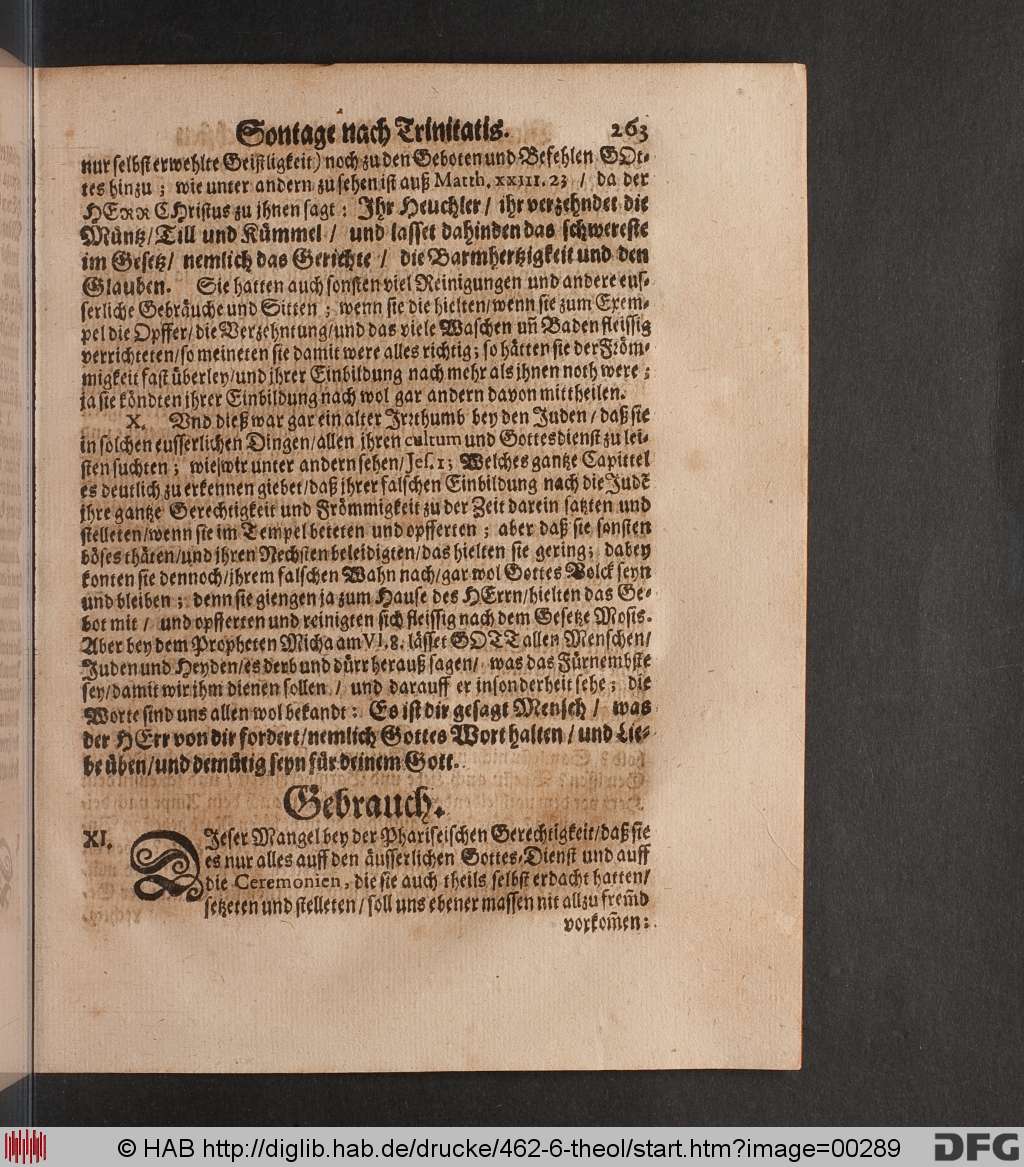 Sontage nach Trinitatis. 263
nur selbst erwehlte Geistligkeit) noch zu den Geboten und Befehlen GOt-
tes hinzu; wie unter andern zu sehen ist auß Matth. XXIII. 23 / da der
HERR CHristus zu ihnen sagt: Ihr Heuchler/ ihr verzehndet die
Müntz/Till und Kümmel / und lasset dahinden das schwereste
im Gesetz/ nemlich das Gerichte / die Barmhertzigkeit und den
Glauben. Sie hatten auch sonsten viel Reinigungen und andere eus-
serliche Gebräuche und Sitten; wenn sie die hielten/wenn sie zum Exem-
pel die Opffer/die Verzehntung/und das viele Waschen uñ Baden fleissig
verrichteten/so meineten sie damit were alles richtig; so hätten sie der Fröm-
migkeit fast überley/und jhrer Einbildung nach mehr als jhnen noth were;
ja sie köndten jhrer Einbildung nach wol gar andern davon mittheilen.
X. Vnd dieß war gar ein alter Irrthumb bey den Juden/daß sie
in solchen eusserlichen Dingen/allen jhren cultum und Gottesdienst zu lei-
sten suchten; wie wir unter andern sehen/Jes. 1; Welches gantze Capittel
es deutlich zu erkennen giebet/daß jhrer falschen Einbildung nach die Judē
jhre gantze Gerechtigkeit und Frömmigkeit zu der Zeit darein satzten und
stelleten/wenn sie im Tempel beteten und opfferten; aber daß sie sonsten
böses thäten/und jhren Nechsten beleidigten/das hielten sie gering; dabey
konten sie dennoch/jhrem falschen Wahn nach/gar wol Gottes Volck seyn
und bleiben; denn sie giengen ja zum Hause des HErrn/hielten das Ge-
bot mit / und opfferten und reinigten sich fleissig nach dem Gesetze Mosis.
Aber bey dem Propheten Micha am VI. 8. lässet GOTT allen Menschen/
Juden und Heyden/es derb und dürr herauß sagen/ was das Fürnembste
sey/damit wir jhm dienen sollen / und darauff er insonderheit sehe; die
Worte sind uns allen wol bekandt: Es ist dir gesagt Mensch / was
der HErr von dir fordert/nemlich Gottes Wort halten / und Lie-
be üben/und demütig seyn für deinem Gott.
Gebrauch.
XI. DJeser Mangel bey der Phariseischen Gerechtigkeit/daß sie
es nur alles auff den äusserlichen Gottes-Dienst und auff
die Ceremonien, die sie auch theils selbst erdacht hatten/
setzeten und stelleten/soll uns ebener massen nit allzu frem̃d
vorkom̃en:
© HAB http://diglib.hab.de/drucke/462-6-theol/start.htm?image=00289
DFG